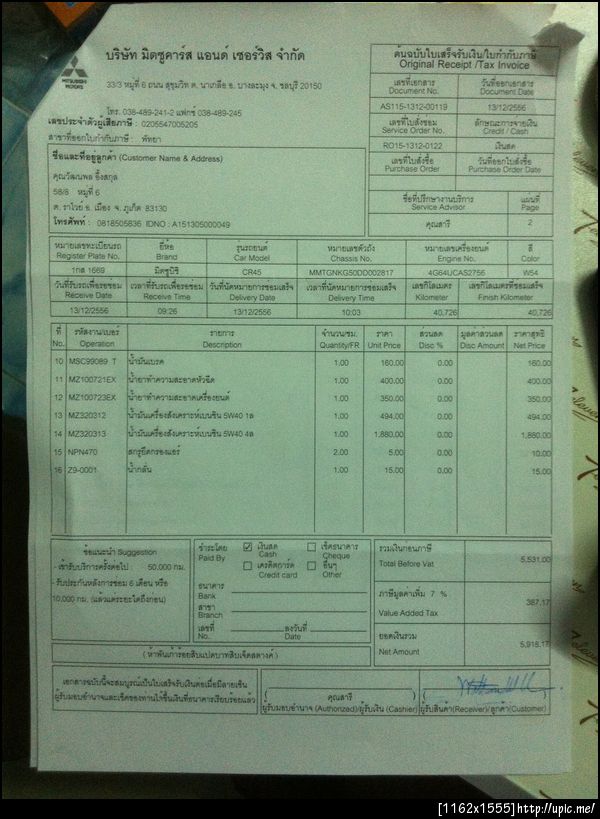 บริษัท มิตซูคาร์ส แอนด์ เซอร์วิส จำกัด
MITSUBISHI
MOTORS
33/3 หมู่ที่ 6 ถนน สุขุมวิท ต. นาเกลือ อ. บางละมุง จ. ชลบุรี 20150
โทร. 038-489-241-2 แฟกซ์ 038-489-245
เลขประจำตัวผู้เสียภาษี : 0205547005205
สาขาที่ออกใบกำกับภาษี : พัทยา
ต้นฉบับใบเสร็จรับเงิน/ใบกำกับภาษี
Original Receipt /Tax Invoice
เลขที่เอกสาร วันที่ออกเอกสาร
Document No. Document Date
AS115-1312-00119 13/12/2556
เลขที่ใบสั่งซ่อม ลักษณะการจ่ายเงิน
Service Order No. Credit / Cash
RO15-1312-0122 เงินสด
เลขที่ใบสั่งซื้อ วันที่ออกใบสั่งซื้อ
Purchase Order Purchase Order Date
ชื่อที่ปรึกษางานบริการ แผ่นที่
Service Advisor Page
คุณสารี 2
ชื่อและที่อยู่ลูกค้า (Customer Name & Address)
คุณวัฒนพล อึ้งสกุล
58/8 หมู่ที่ 6
ต. ราไวย์ อ. เมือง จ. ภูเก็ต 83130
โทรศัพท์ : 0818505836 IDNO : A151305000049
หมายเลขทะเบียนรถ ยี่ห้อ รุ่นรถยนต์ หมายเลขตัวถัง หมายเลขเครื่องยนต์ สี
Register Plate No. Brand Car Model Chassis No. Engine No. Color
1กส 1669 มิตซูบิชิ CR45 MMTGNKG50DD002817 4G64UCAS2756 W54
วันที่รับรถเพื่อรอซ่อม เวลาที่รับรถเพื่อรอซ่อม วันที่นัดหมายการซ่อมเสร็จ เวลาที่นัดหมายการซ่อมเสร็จ เลขกิโลเมตร เลขกิโลเมตรที่ซ่อมเสร็จ
Receive Date Receive Time Delivery Date Delivery Time Kilometer Finish Kilometer
13/12/2556 09:26 13/12/2556 10:03 40,726 40,726
ที่ รหัสงาน/เบอร์ รายการ จำนวน/ชม. ราคา ส่วนลด มูลค่าส่วนลด ราคาสุทธิ
No. Operation Description Quantity/FR Unit Price Disc % Disc Amount Net Price
10 MSC99089 T น้ำมันเบรค 1.00 160.00 0.00 160.00
11 MZ100721EX น้ำยาทำความสะอาดหัวฉีด 1.00 400.00 0.00 400.00
12 MZ100723EX น้ำยาทำความสะอาดเครื่องยนต์ 1.00 350.00 0.00 350.00
13 MZ320312 น้ำมันเครื่องสังเคราะห์เบนซิน 5W40 1ล 1.00 494.00 0.00 494.00
14 MZ320313 น้ำมันเครื่องสังเคราะห์เบนซิน 5W40 4ล 1.00 1,880.00 0.00 1,880.00
15 NPN470 สกรูยึดกรองแอร์ 2.00 5.00 0.00 10.00
16 Z9-0001 น้ำกลั่น 1.00 15.00 0.00 15.00
ข้อแนะนำ Suggestion
- เข้ารับบริการครั้งต่อไป : 50,000 กม.
- รับประกันหลังการซ่อม 6 เดือน หรือ
10,000 กม. (แล้วแต่ระยะใดถึงก่อน)
ชำระโดย เงินสด เช็คธนาคาร
Paid By Cash Cheque
เครดิตการ์ด อื่นๆ
Credit card Other
ธนาคาร
Bank
สาขา
Branch
เลขที่ ลงวันที่
No. Date
รวมเงินก่อนภาษี 5,531.00
Total Before Vat
ภาษีมูลค่าเพิ่ม 7 % 387.17
Value Added Tax
ยอดเงินรวม 5,918.17
Net Amount
( ห้าพันเก้าร้อยสิบแปดบาทสิบเจ็ดสตางค์ )
เอกสารฉบับนี้จะสมบูรณ์เป็นใบเสร็จรับเงินต่อเมื่อมีลายเซ็น
ผู้รับมอบอำนาจและเช็คของท่านได้ขึ้นเงินที่ธนาคารเรียบร้อยแล้ว
( คุณสารี )
ผู้รับมอบอำนาจ (Authorized)/ผู้รับเงิน (Cashier)
ผู้รับสินค้า(Receiver)/ลูกค้า(Customer)
[1162x1555]http://upic.me/